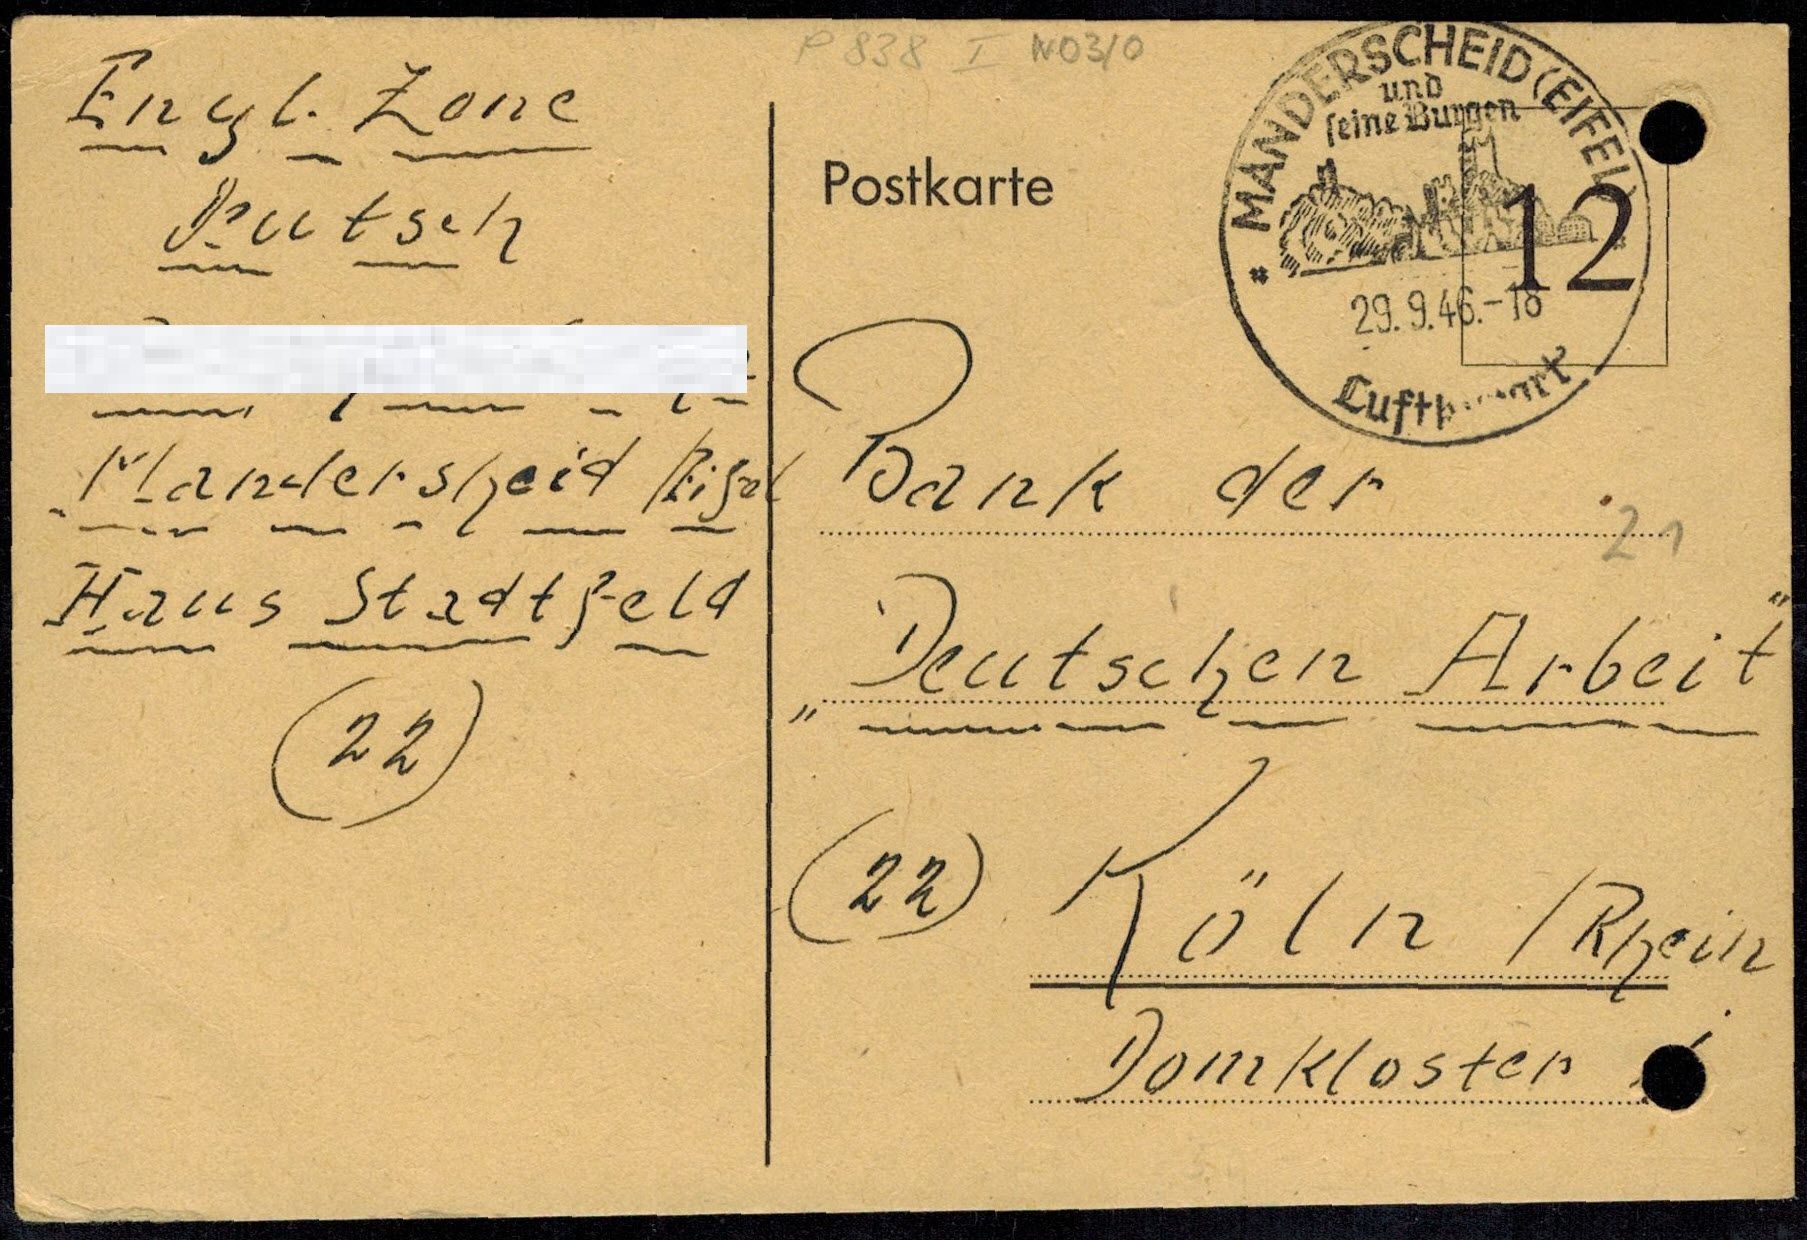 P 838 I N03/0
Engl. Zone
Deutsch
Manderscheid /Eifel
Haus Stadtfeld
(22)
Postkarte
MANDERSCHEID (EIFEL)
und
seine Burgen
12
29.9.46.-18
Bank der
21
„Deutschen Arbeit"
(22) Köln /Rhein
Domkloster